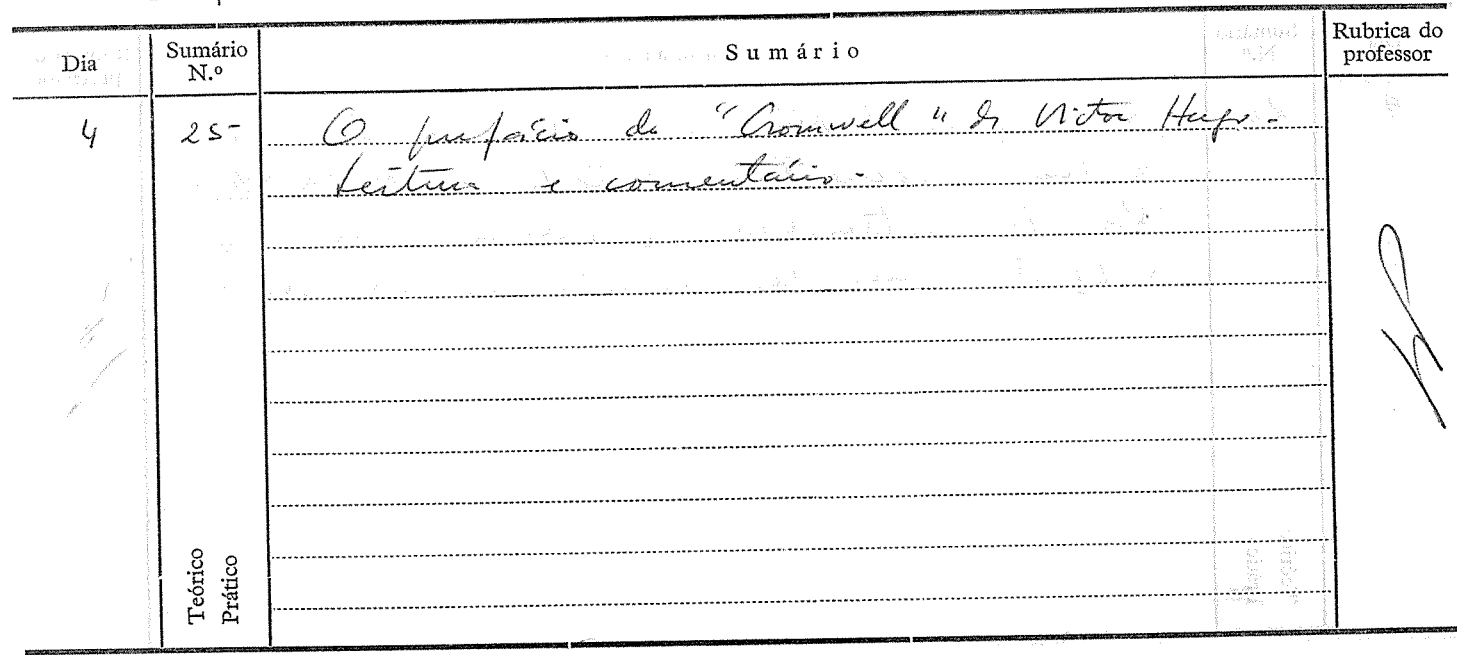 Dia
Sumário
N.º
Sumário
Rubrica do
professor
4
25
O prefácio de "Cromwell" de Victor Hugo.
Leitura e comentário.
Teórico
Prático